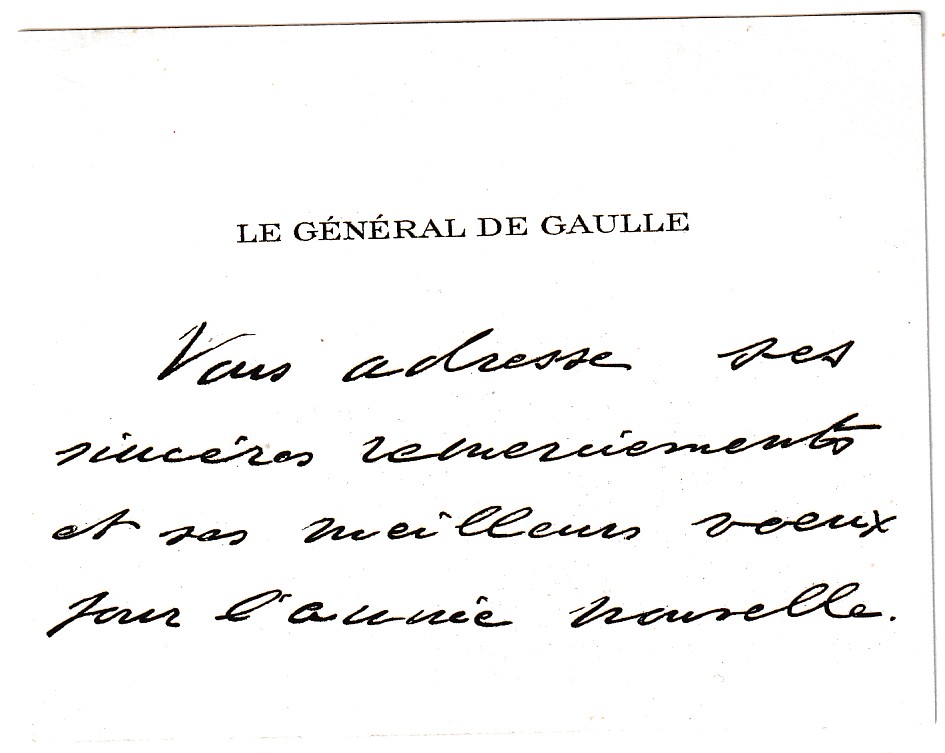 LE GÉNÉRAL DE GAULLE
Vous adresse ses
sincères remerciements
et ses meilleurs voeux
pour l'année nouvelle.